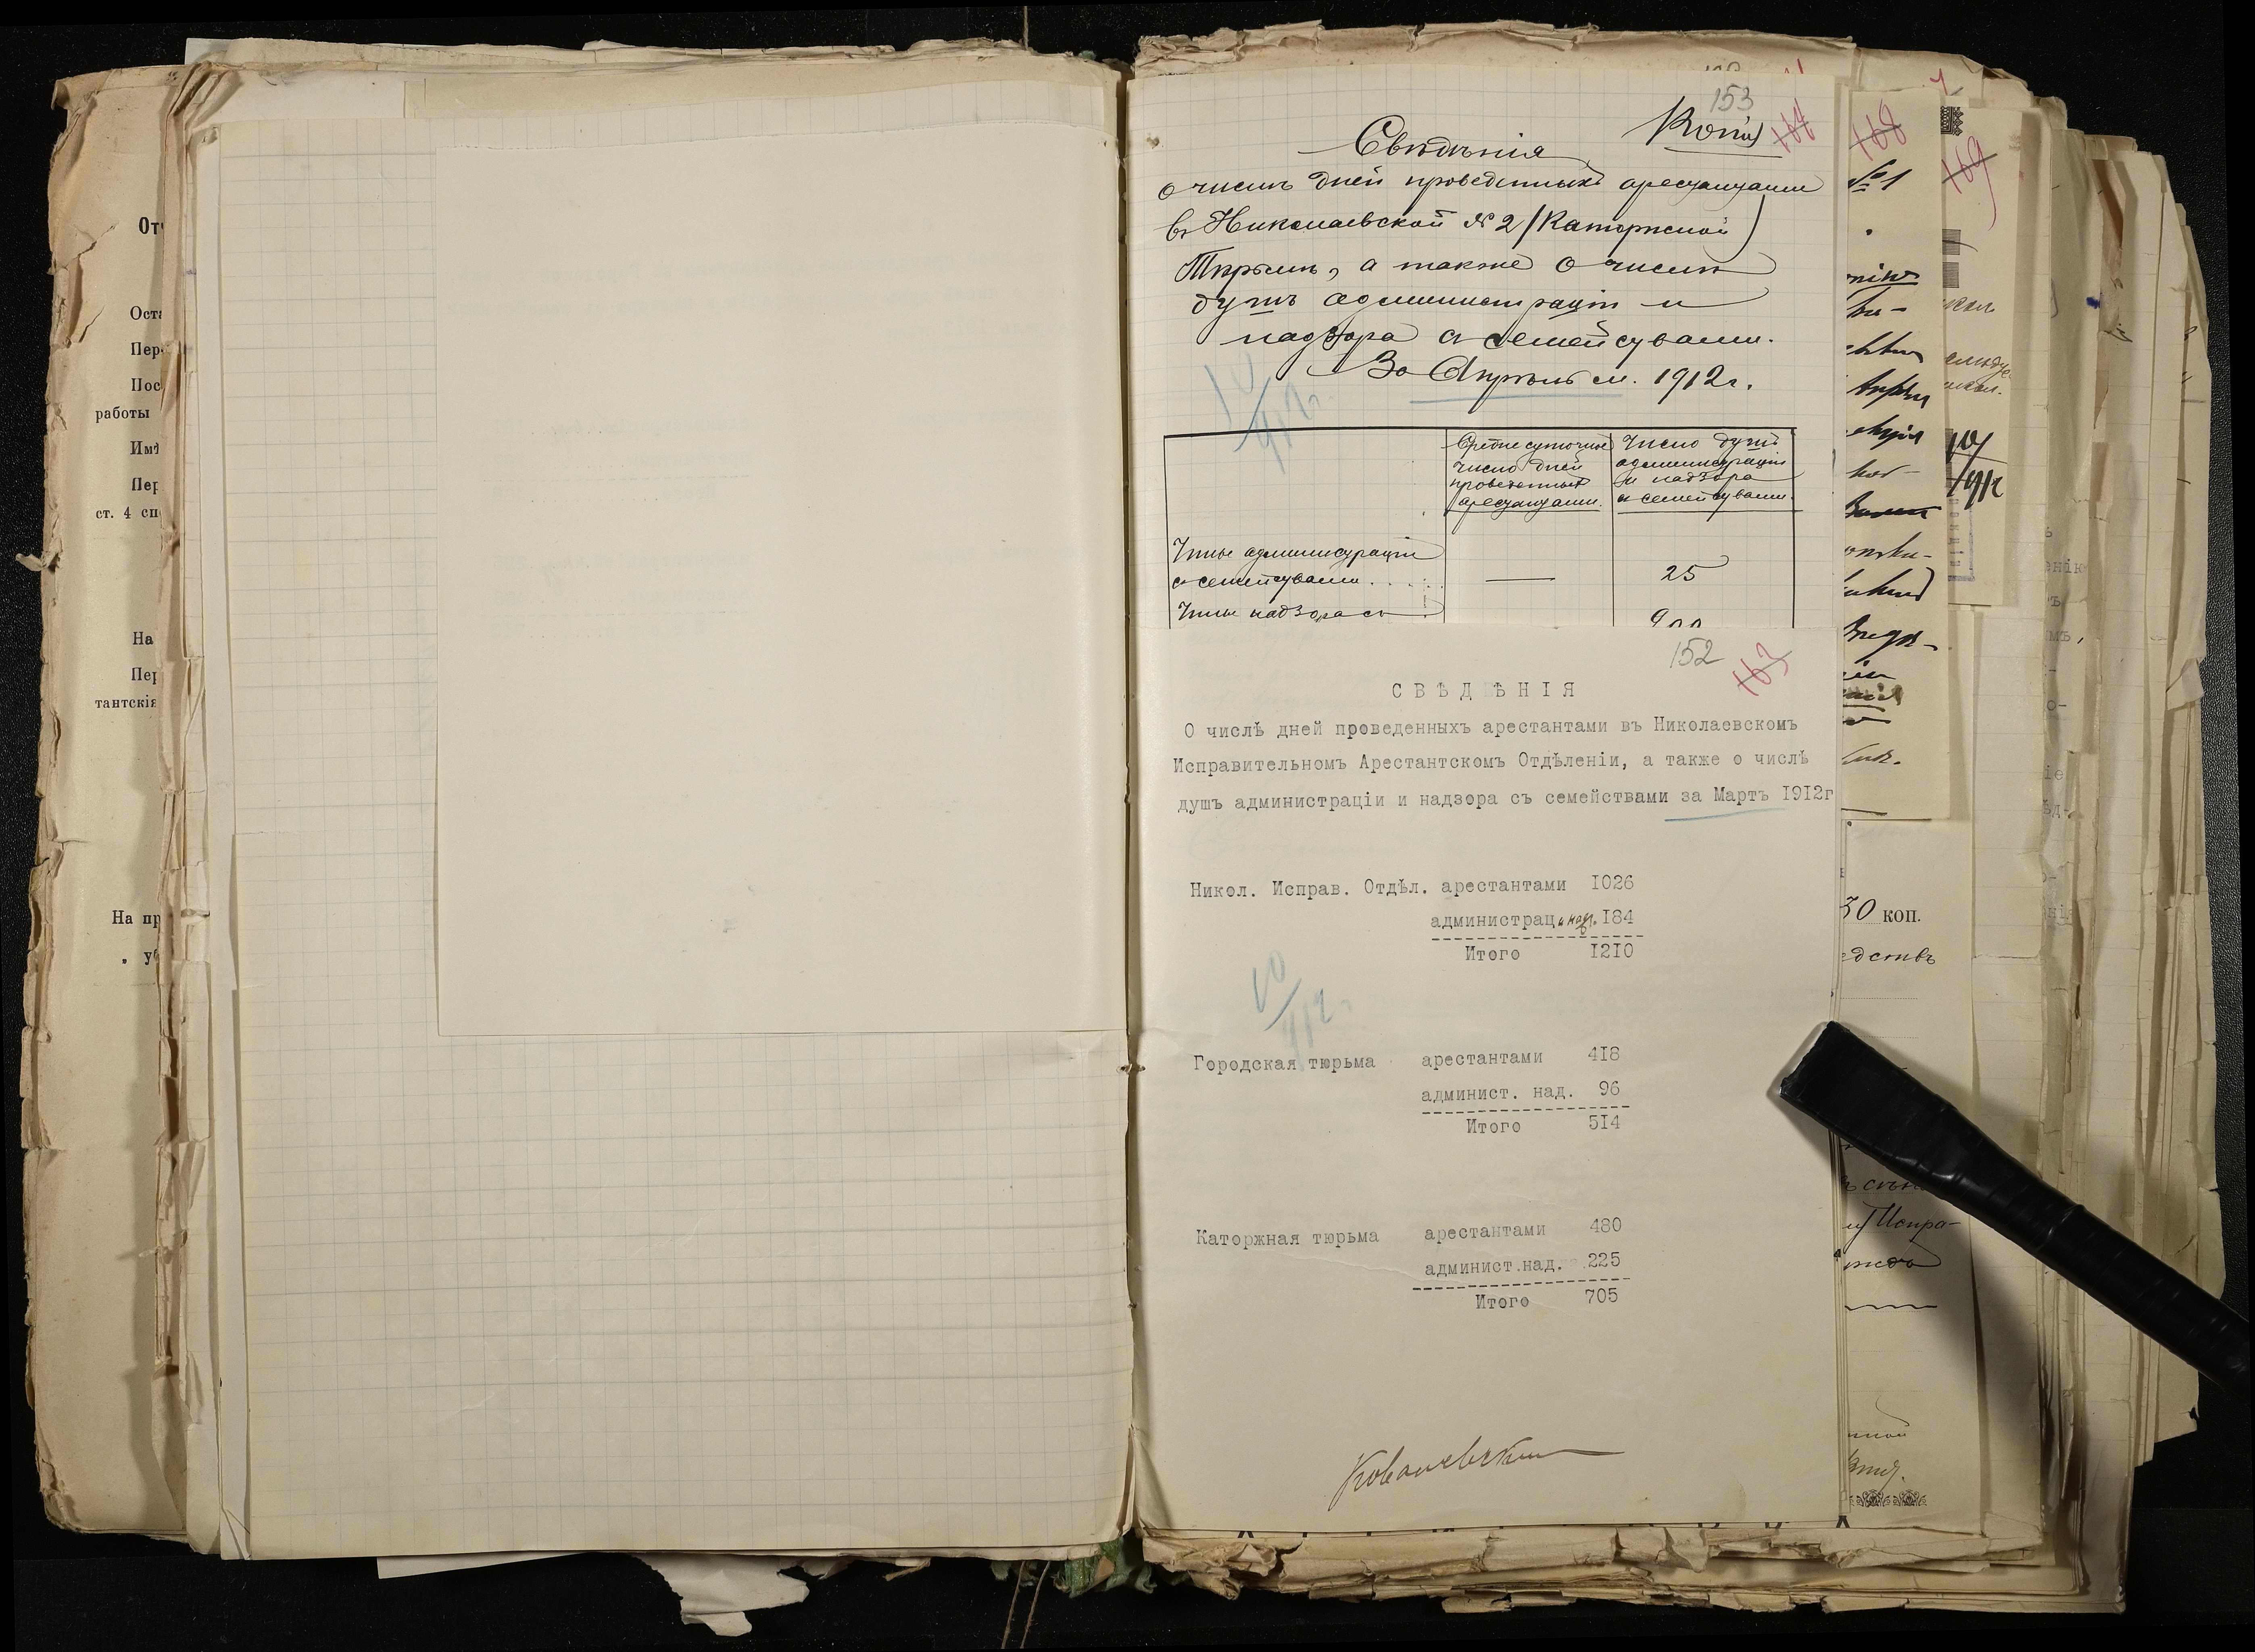 От
Оста
Пер
Пос
работы
Имѣ
Пер
ст. 4 сп
На
Пер
тантскія
На пр
153
Копія
164
Свѣдѣнія
о числѣ дней проведенныхъ арестантами
въ Николаевской № 2 (Каторжной)
Тюрьмѣ, а также о числѣ
душъ администраціи и
надзора съ семействами.
За Апрѣль м. 1912 г.
10/912 г.
Средне суточное число дней проведенныхъ арестантами.
Число душъ администраціи и надзора съ семействами.
Чины администраціи
съ семействами.... — 25
Чины надзора съ
152
163
СВѢДѢНІЯ
О числѣ дней проведенныхъ арестантами въ Николаевскомъ
Исправительномъ Арестантскомъ Отдѣленіи, а также о числѣ
душъ администраціи и надзора съ семействами за Мартъ I9I2г
Никол. Исправ. Отдѣл. арестантами I026
администрац и над. I84
Итого I2I0
10/912 г.
Городская тюрьма арестантами 4I8
админист. над. 96
Итого 5I4
Каторжная тюрьма арестантами 480
админист.над. 225
Итого 705
Ковалевскій
168
№ 1
169
30 коп.
едствъ
Испра-